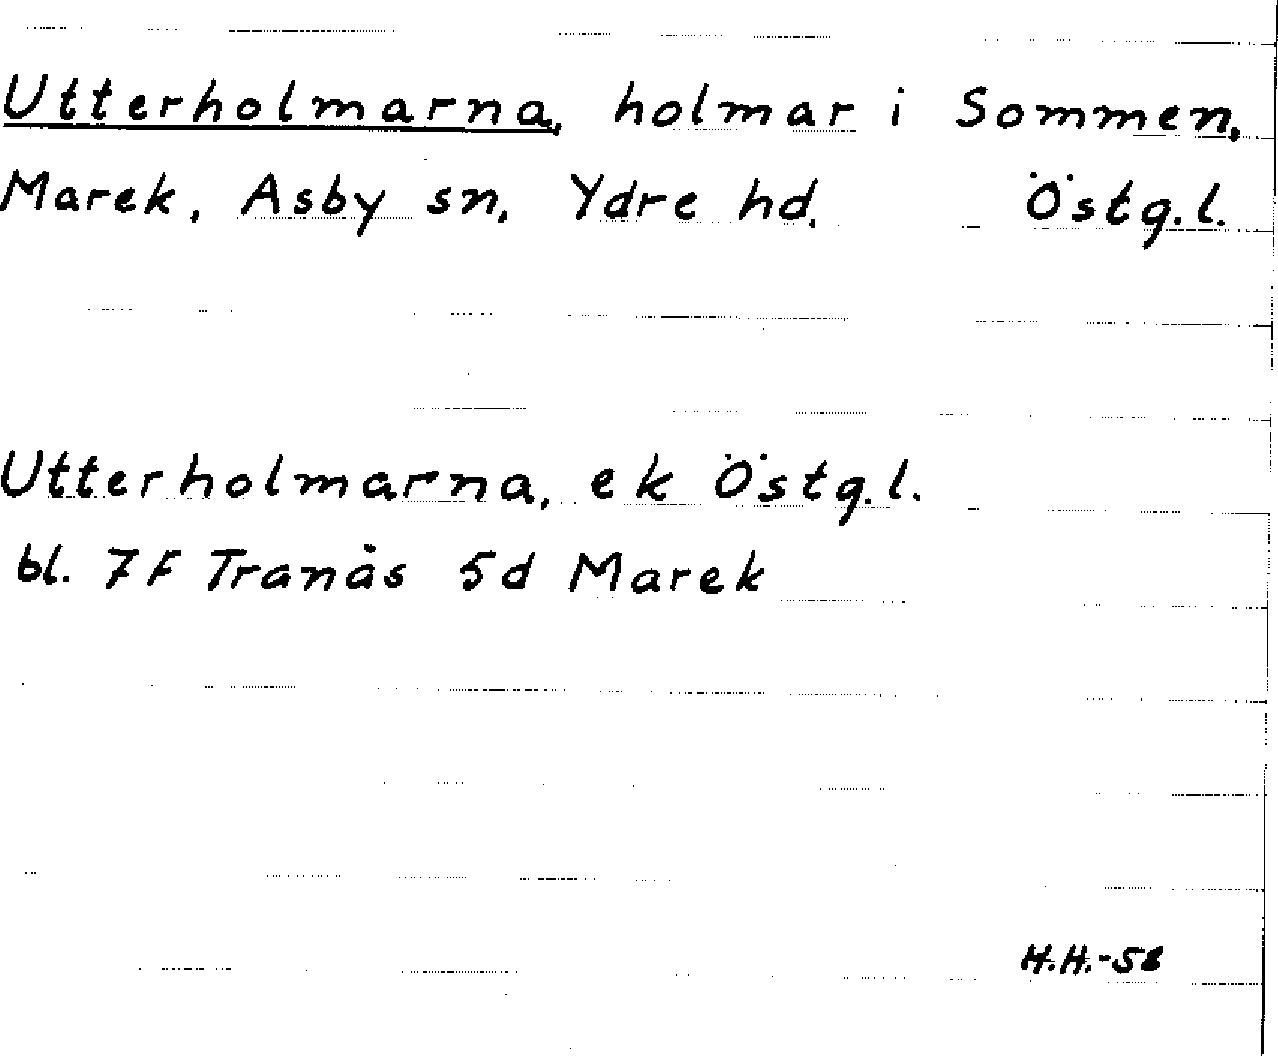 Utterholmarna, holmar i Sommen,
Marek, Asby sn, Ydre hd. Östg.l.
Utterholmarna, ek Östg.l.
bl. 7F Tranås 5d Marek